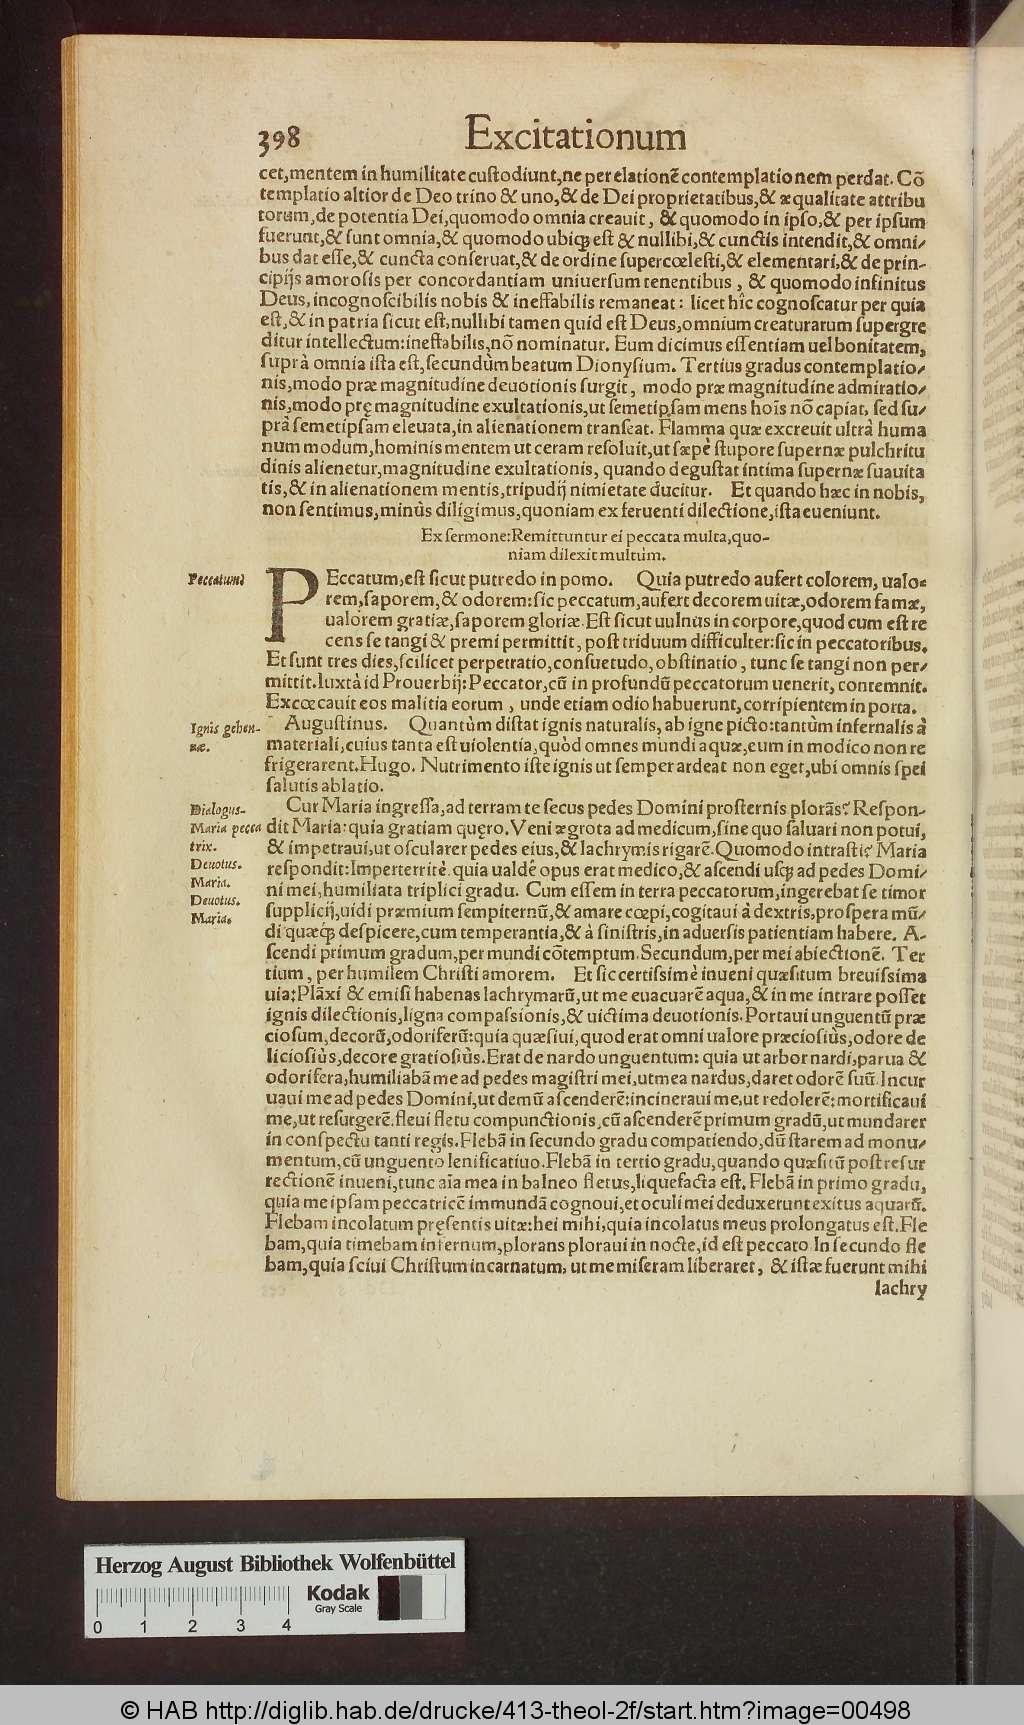 398 Excitationum
cet,mentem in humilitate cuſtodiunt,ne per elationē contemplationem perdat. Cō
templatio altior de Deo trino & uno,& de Dei proprietatibus,& æqualitate attribu
torum,de potentia Dei,quomodo omnia creauit, & quomodo in ipſo,& per ipſum
fuerunt,& ſunt omnia,& quomodo ubiqꝫ eſt & nullibi,& cunctis intendit,& omni/
bus dat eſſe,& cuncta conſeruat,& de ordine ſupercœleſti,& elementari,& de prin-
cipijs amoroſis per concordantiam uniuerſum tenentibus, & quomodo infinitus
Deus,incognoſcibilis nobis & ineffabilis remaneat: licet hîc cognoſcatur per quia
eſt,& in patria ſicut eſt,nullibi tamen quid eſt Deus,omnium creaturarum ſupergre
ditur intellectum:ineffabilis,nō nominatur. Eum dicimus eſſentiam uel bonitatem,
ſuprà omnia iſta eſt,ſecundùm beatum Dionyſium. Tertius gradus contemplatio/
nis,modo præ magnitudine deuotionis ſurgit, modo præ magnitudine admiratio/
nis,modo prę magnitudine exultationis,ut ſemetipſam mens hoīs nō capiat, ſed ſu/
prà ſemetipſam eleuata,in alienationem tranſeat. Flamma quæ excreuit ultrà huma
num modum,hominis mentem ut ceram reſoluit,ut ſæpè ſtupore ſupernæ pulchritu
dinis alienetur,magnitudine exultationis, quando deguſtat intima ſupernæ ſuauita
tis,& in alienationem mentis,tripudij nimietate ducitur. Et quando hæc in nobis,
non ſentimus,minùs diligimus,quoniam ex feruenti dilectione,iſta eueniunt.
Ex ſermone:Remittuntur ei peccata multa,quo-
niam dilexit multùm.
Peccatum
PEccatum,eſt ſicut putredo in pomo. Quia putredo aufert colorem, ualo-
rem,ſaporem,& odorem:ſic peccatum,aufert decorem uitæ,odorem famæ,
ualorem gratiæ,ſaporem gloriæ. Eſt ſicut uulnus in corpore,quod cum eſt re
cens ſe tangi & premi permittit, poſt triduum difficulter:ſic in peccatoribus.
Et ſunt tres dies,ſcilicet perpetratio,conſuetudo,obſtinatio, tunc ſe tangi non per/
mittit.Iuxtà id Prouerbij:Peccator,cū in profundū peccatorum uenerit, contemnit.
Excœcauit eos malitia eorum, unde etiam odio habuerunt,corripientem in porta.
Ignis gehen-
næ.
Auguſtinus. Quantùm diſtat ignis naturalis, ab igne picto:tantùm infernalis à
materiali,cuius tanta eſt uiolentia,quòd omnes mundi aquæ,eum in modico non re
frigerarent.Hugo. Nutrimento iſte ignis ut ſemper ardeat non eget,ubi omnis ſpei
ſalutis ablatio.
Dialogus-
Maria pecca
trix.
Deuotus.
Maria.
Deuotus.
Maria.
Cur Maria ingreſſa,ad terram te ſecus pedes Domini proſternis plorās? Reſpon-
dit Maria:quia gratiam quęro.Veni ægrota ad medicum,ſine quo ſaluari non potui,
& impetraui,ut oſcularer pedes eius,& lachrymis rigarē.Quomodo intraſti? Maria
reſpondit:Imperterritè. quia ualdè opus erat medico,& aſcendi uſqꝫ ad pedes Domi/
ni mei,humiliata triplici gradu. Cum eſſem in terra peccatorum,ingerebat ſe timor
ſupplicij,uidi præmium ſempiternū,& amare cœpi,cogitaui à dextris,proſpera mū/
di quæqꝫ deſpicere,cum temperantia,& à ſiniſtris,in aduerſis patientiam habere. A-
ſcendi primum gradum,per mundi cōtemptum. Secundum,per mei abiectionē. Ter
tium, per humilem Chriſti amorem. Et ſic certiſsimè inueni quæſitum breuiſsima
uia:Plāxi & emiſi habenas lachrymarū,ut me euacuarē aqua,& in me intrare poſſet
ignis dilectionis,ligna compaſsionis,& uictima deuotionis. Portaui unguentū præ
cioſum,decorū,odoriferū:quia quæſiui,quod erat omni ualore præcioſiùs,odore de
licioſiùs,decore gratioſiùs.Erat de nardo unguentum: quia ut arbor nardi,parua &
odorifera,humiliabā me ad pedes magiſtri mei,ut mea nardus,daret odorē ſuū.Incur
uaui me ad pedes Domini,ut demū aſcenderē:incineraui me,ut redolerē:mortificaui
me,ut reſurgerē.fleui fletu compunctionis,cū aſcenderē primum gradū,ut mundarer
in conſpectu tanti regis.Flebā in ſecundo gradu compatiendo,dū ſtarem ad monu/
mentum,cū unguento lenificatiuo.Flebā in tertio gradu,quando quæſitū poſt reſur
rectionē inueni,tunc aīa mea in balneo fletus,liquefacta eſt. Flebā in primo gradu,
quia meipſam peccatricē immundā cognoui,et oculi mei deduxerunt exitus aquarū.
Flebam incolatum pręſentis uitæ:hei mihi,quia incolatus meus prolongatus eſt.Fle
bam,quia timebam infernum,plorans ploraui in nocte,id eſt peccato.In ſecundo fle
bam,quia ſciui Chriſtum incarnatum, ut me miſeram liberaret, & iſtæ fuerunt mihi
lachry
Herzog August Bibliothek Wolfenbüttel
Kodak
Gray Scale
0 1 2 3 4
© HAB http://diglib.hab.de/drucke/413-theol-2f/start.htm?image=00498